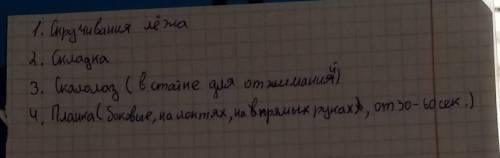 1. Скручивания лёжа
2. Складка
3. Скалолаз ( в стайне для отжиманий)
4. Планка ( боковые, на локтях, на прямых руках), от 30-60 сек.)